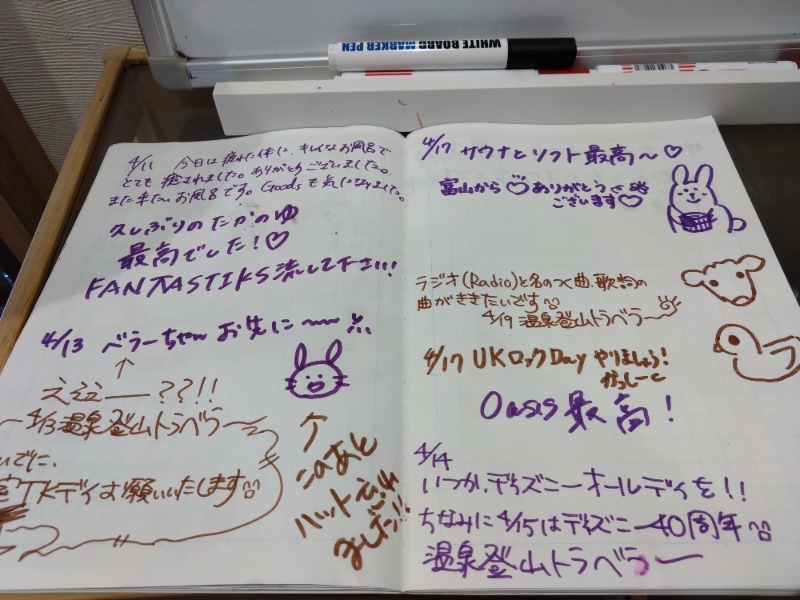 WHITE BOARD MARKER PEN
4/11 今日は疲れた体に、キレイなお風呂で
とても癒されました。ありがとうございました。
また来たいお風呂です。Goodsも気になりました。
久しぶりのたかのゆ
最高でした!♡
FANTASTIKS流して下さい!
4/13 べラーちゃん お先に〜
↑
えええー??!!
4/13温泉登山トラベラー
いでに、
TKデイお願いいたします
↑
このあと
ハットを
ました!!
4/17 サウナとソフト最高〜♡
富山から♡ありがとう
ございます♡
ラジオ(Radio)と名のつく曲、歌詞の
曲がききたいです
4/19 温泉登山トラベラー
4/17 UKロックDay やりましょう!
がっしーに
Oasis最高!
4/14
いつか、ディズニーオールデイを!!
ちなみに4/15はディズニー40周年
温泉登山トラベラー